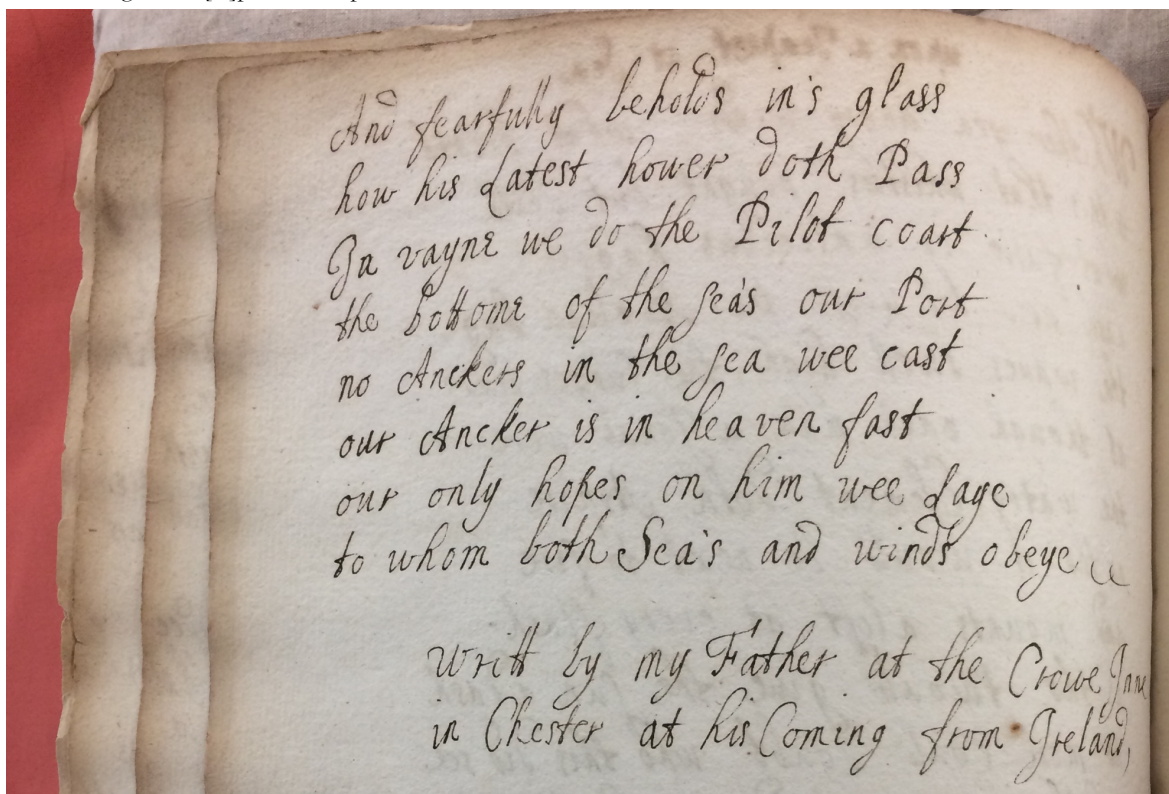 And fearfully beholds in's glass
how his Latest hower doth Pass
In vayne we do the Pilot coart
the bottome of the sea's our Port
no Anckers in the sea wee cast
our Ancker is in heaven fast
our only hopes on him wee Laye
to whom both Sea's and winds obeye
writt by my Father at the Crowe Inne
in Chester at his Coming from Ireland,